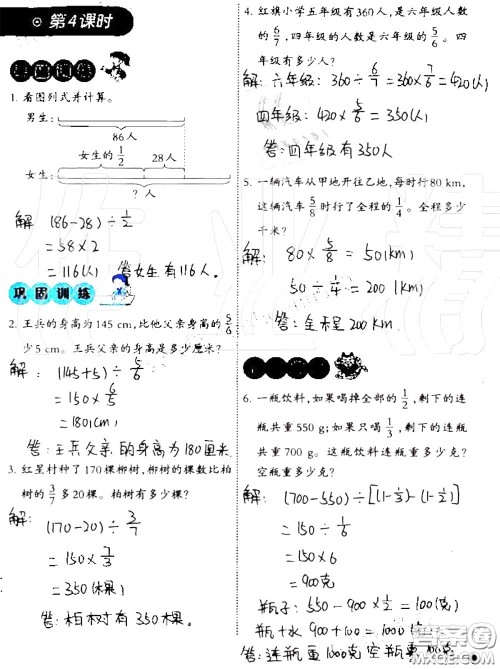 第4课时
1. 看图列式并计算。
男生:
86人
女生的1/2 28人
女生:
? 人
解 (86-28)÷1/2
=58×2
=116(人) 答女生有116人.
巩固训练
2. 王兵的身高为145 cm,比他父亲身高的5/6
少5 cm。王兵父亲的身高是多少厘米?
解 (145+5)÷5/6
=150×6/5
=180(cm)
答:王兵父亲的身高为180厘米
3. 红星村种了170棵柳树,柳树的棵数比柏
树的3/7多20棵。柏树有多少棵?
解: (170-20)÷3/7
=150×7/3
=350(棵)
答:柏树有350棵.
4. 红旗小学五年级有360人,是六年级人数
的6/7,四年级的人数是六年级的5/6。四年
级有多少人?
解: 六年级: 360÷6/7=360×7/6=420(人)
四年级: 420×5/6=350(人)
答:四年级有350人
5. 一辆汽车从甲地开往乙地,每时行80 km,
这辆汽车5/8时行了全程的1/4。全程多少
千米?
解: 80×5/8=50(km)
50÷1/4=200(km)
答:全程200KM.
6. 一瓶饮料,如果喝掉全部的1/2,剩下的连
瓶共重550 g;如果只喝掉1/3,剩下的连瓶
共重700 g。这瓶饮料连瓶重多少克?
空瓶重多少克?
解: (700-550)÷[(1-1/3)-(1-1/2)]
=150÷1/6
=150×6
=900克
瓶子: 550-900×1/2=100(克)
瓶+水 900+100=1000(克)
答:连瓶重1000克空瓶重100克